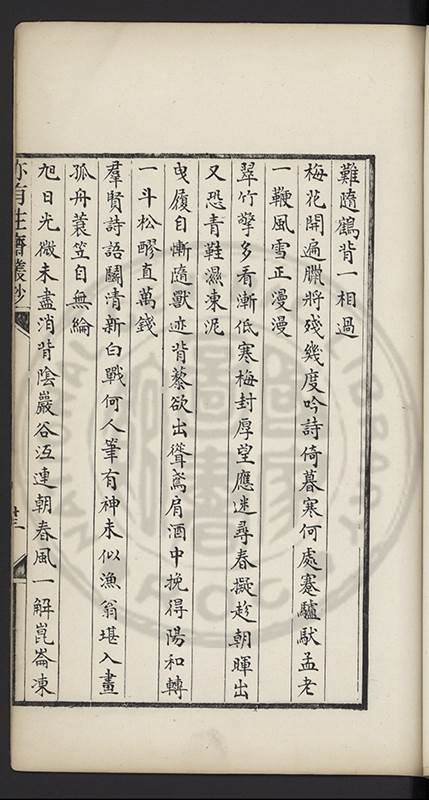 難隨鶴背一相過
梅花開遍臘將殘幾度吟詩倚暮寒何處蹇驢馱孟老
一鞭風雪正漫漫
翠竹擎多看漸低寒梅封厚望應迷尋春擬趁朝暉出
又恐青鞋濕凍泥
曳履自慚隨獸迹背藜欲出聳鳶肩酒中挽得陽和轉
一斗松醪直萬錢
羣賢詩語鬭清新白戰何人筆有神未似漁翁堪入畫
孤舟蓑笠自無綸
旭日光微未盡消背陰巖谷沍連朝春風一解崑崙凍
亦有生齋叢鈔